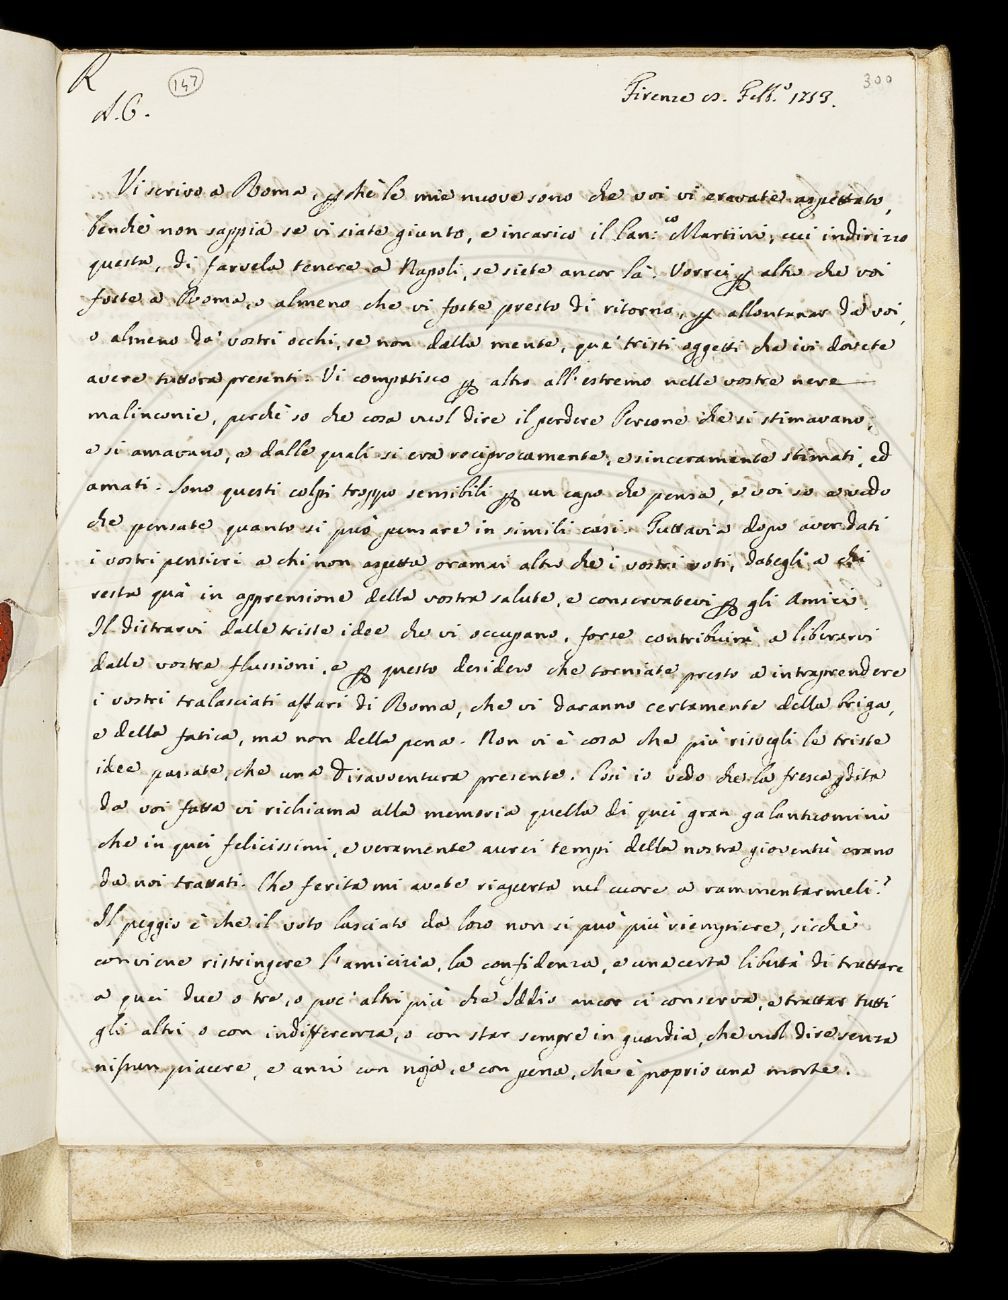 R
147
300
A. C.
Firenze Febb.º 1753.
Vi scrivo a Roma, p chè le mie nuove sono che voi vi eravate aspettato,
benchè non sappia se vi siate giunto, e incarico il Can.co Martini, cui indirizzo
questa, di farvela tenere a Napoli, se siete ancor là. Vorrei p altro che voi
foste a Roma, o almeno che vi foste presto di ritorno, p allontanar da voi,
o almeno da' vostri occhi, se non dalla mente, que' tristi oggetti che ivi dovete
avere tuttora presenti. Vi compatisco p altro all'estremo nelle vostre nere
malinconie, perchè so che cosa vuol dire il perdere Persone che si stimavano,
e si amavano, e dalle quali si era reciprocamente, e sinceramente stimati, ed
amati. Sono questi colpi troppo sensibili p un capo che pensa, e voi so e vedo
che pensate quanto si può pensare in simili casi. Tuttavia dopo aver dati
i vostri pensieri a chi non aspetta oramai altro che i vostri voti, dategli a chi
resta quà in apprensione della vostra salute, e conservatevi p gli Amici.
Il distrarvi dalle triste idee che vi occupano, forse contribuirà a liberarvi
dalle vostre flussioni, e p questo desidero che torniate presto a intraprendere
i vostri tralasciati affari di Roma, che vi daranno certamente della briga,
e della fatica, ma non della pena. Non vi è cosa che più risvegli le triste
idee passate, che una disavventura presente. Così io vedo che la fresca pdita
da voi fatta vi richiama alla memoria quella di quei gran galantuomini
che in quei felicissimi, e veramente aurei tempi della nostra gioventù erano
da noi trattati. Che ferita mi avete riaperta nel cuore a rammentarmeli!
Il peggio è che il voto lasciato da loro non si può più riempiere, sicchè
conviene ristringere l'amicizia, la confidenza, e una certa libertà di trattare
a quei due o tre, o poc'altri più che Iddio ancor ci conserva, e trattar tutti
gli altri o con indifferenza, o con star sempre in guardia, che vuol dire senza
nissun piacere, e anzi con noja, e con pena, che è proprio una morte.